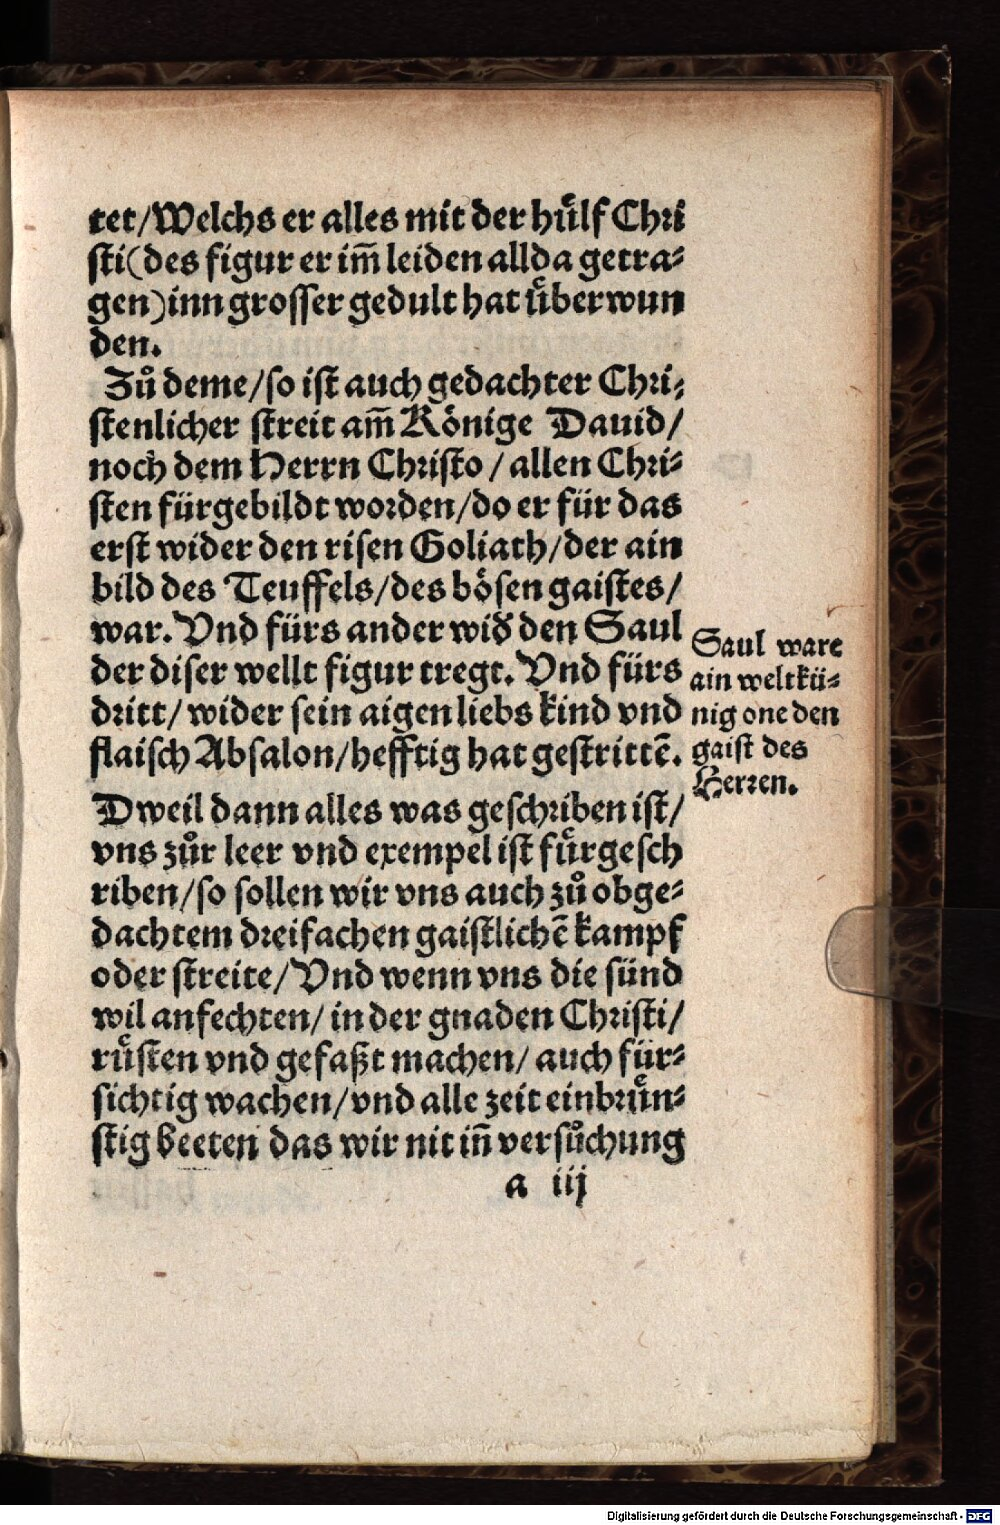 tet/Welchs er alles mit der huͤlf Chri
sti(des figur er im̃ leiden allda getra⸗
gen)inn grosser gedult hat uͤberwun
den.
Zů deme/so ist auch gedachter Chri⸗
stenlicher streit am̃ Könige Dauid/
noch dem Herrn Christo / allen Chri⸗
sten fürgebildt worden/do er für das
erst wider den risen Goliath/der ain
bild des Teuffels/des bösen gaistes/
war. Vnd fürs ander wid̕ den Saul
der diser wellt figur tregt. Vnd fürs
dritt/ wider sein aigen liebs kind vnd
flaisch Absalon/hefftig hat gestrittẽ.
Saul ware
ain weltkü⸗
nig one den
gaist des
Herren.
Dweil dann alles was geschriben ist/
vns zůr leer vnd exempel ist fuͤrgesch
riben/so sollen wir vns auch zů obge⸗
dachtem dreifachen gaistlichẽ kampf
oder streite/Vnd wenn vns die sünd
wil anfechten/ in der gnaden Christi/
ruͤsten vnd gefaßt machen/ auch für⸗
sichtig wachen/vnd alle zeit einbruͤn⸗
stig beeten das wir nit iñ versůchung
a iij
Digitalisierung gefördert durch die Deutsche Forschungsgemeinschaft - DFG